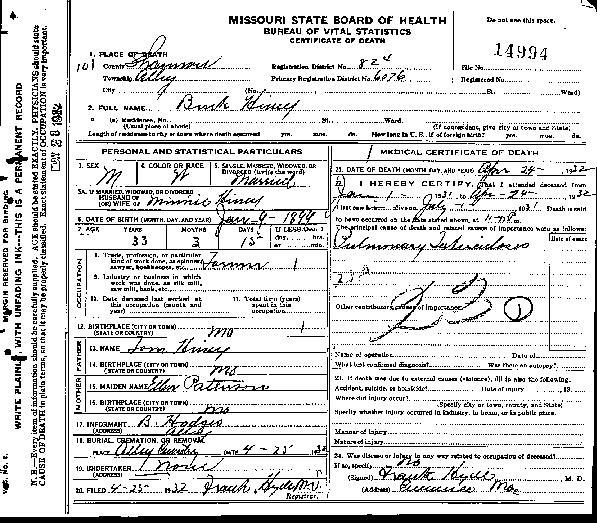 MISSOURI STATE BOARD OF HEALTH
BUREAU OF VITAL STATISTICS
CERTIFICATE OF DEATH
Do not use this space.
14994
1. PLACE OF DEATH
County Shannon
Registration District No. 824
File No.
Township Alley
Primary Registration District No. 6076
Registered No.
City (No. St. Ward)
2. FULL NAME Buck Hiney
(a) Residence, No. St. Ward.
(Usual place of abode) (If nonresident, give city or town and State)
Length of residence in city or town where death occurred yrs. mos. ds. How long in U. S., if of foreign birth? yrs. mos. ds.
PERSONAL AND STATISTICAL PARTICULARS
3. SEX M
4. COLOR OR RACE W
5. SINGLE, MARRIED, WIDOWED, OR DIVORCED (write the word) Married
5A. IF MARRIED, WIDOWED, OR DIVORCED
HUSBAND OF
(OR) WIFE OF Minnie Hiney
6. DATE OF BIRTH (MONTH, DAY, AND YEAR) Jan-9-1899
7. AGE YEARS MONTHS DAYS If LESS than 1 day, hrs. or min.
33 3 15
OCCUPATION
8. Trade, profession, or particular kind of work done, as spinner, sawyer, bookkeeper, etc. Farmer 1
9. Industry or business in which work was done, as silk mill, saw mill, bank, etc.
10. Date deceased last worked at this occupation (month and year)
11. Total time (years) spent in this occupation
12. BIRTHPLACE (CITY OR TOWN)
(STATE OR COUNTRY) Mo 1
FATHER
13. NAME Tom Hiney
14. BIRTHPLACE (CITY OR TOWN)
(STATE OR COUNTRY) Mo
MOTHER
15. MAIDEN NAME Ellen Patterson
16. BIRTHPLACE (CITY OR TOWN)
(STATE OR COUNTRY) Mo
17. INFORMANT B Hodges
(ADDRESS) Alley
18. BURIAL, CREMATION, OR REMOVAL
PLACE Alley DATE 4-25 1932
19. UNDERTAKER None
(ADDRESS)
20. FILED 4-25 1932 Frank Hyde M.D.
Registrar.
MEDICAL CERTIFICATE OF DEATH
21. DATE OF DEATH (MONTH, DAY, AND YEAR) Apr 24- 1932
22. I HEREBY CERTIFY, That I attended deceased from
Jan 1 1931 to Apr-24- 1932
I last saw him alive on July 1931 Death is said
to have occurred on the date stated above, at 11 P m.
The principal cause of death and related causes of importance were as follows:
Date of onset
Pulmonary Tuberculosis
23
Other contributory causes of importance:
1
Name of operation Date of
What test confirmed diagnosis? Was there an autopsy?
23. If death was due to external causes (violence), fill in also the following:
Accident, suicide, or homicide? Date of injury , 19
Where did injury occur?
(Specify city or town, county, and State)
Specify whether injury occurred in industry, in home, or in public place.
Manner of injury
Nature of injury
24. Was disease or injury in any way related to occupation of deceased? No
If so, specify
(Signed) Frank Hyde M. D.
(Address) Eminence Mo
MARGIN RESERVED FOR BINDING
WRITE PLAINLY, WITH UNFADING INK—THIS IS A PERMANENT RECORD
N. B.—Every item of information should be carefully supplied. AGE should be stated EXACTLY. PHYSICIANS should state
CAUSE OF DEATH in plain terms, so that it may be properly classified. Exact statement of OCCUPATION is very important.